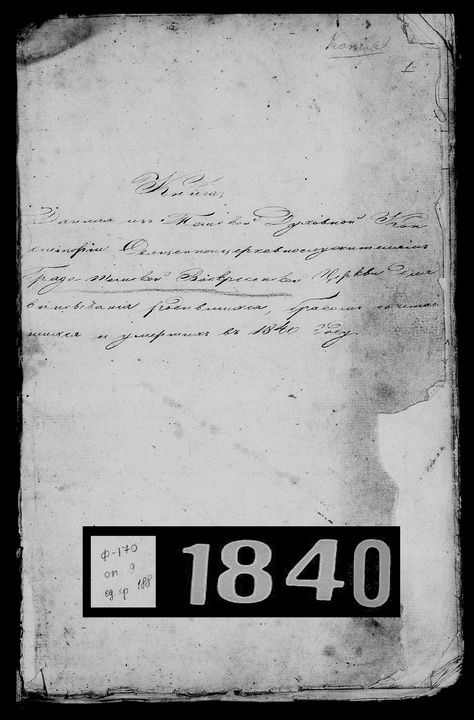 Копія
1
Книга,
Данная изъ Томской Духовной Кон
систоріи Священноцерковнослужителямъ
Градо Томской Воскресенской Церкви для
записыванія родившихся, бракомъ сочетав
шихся и умершихъ въ 1840 году.
Ф-170
оп. 9
ед. хр. 188
1840